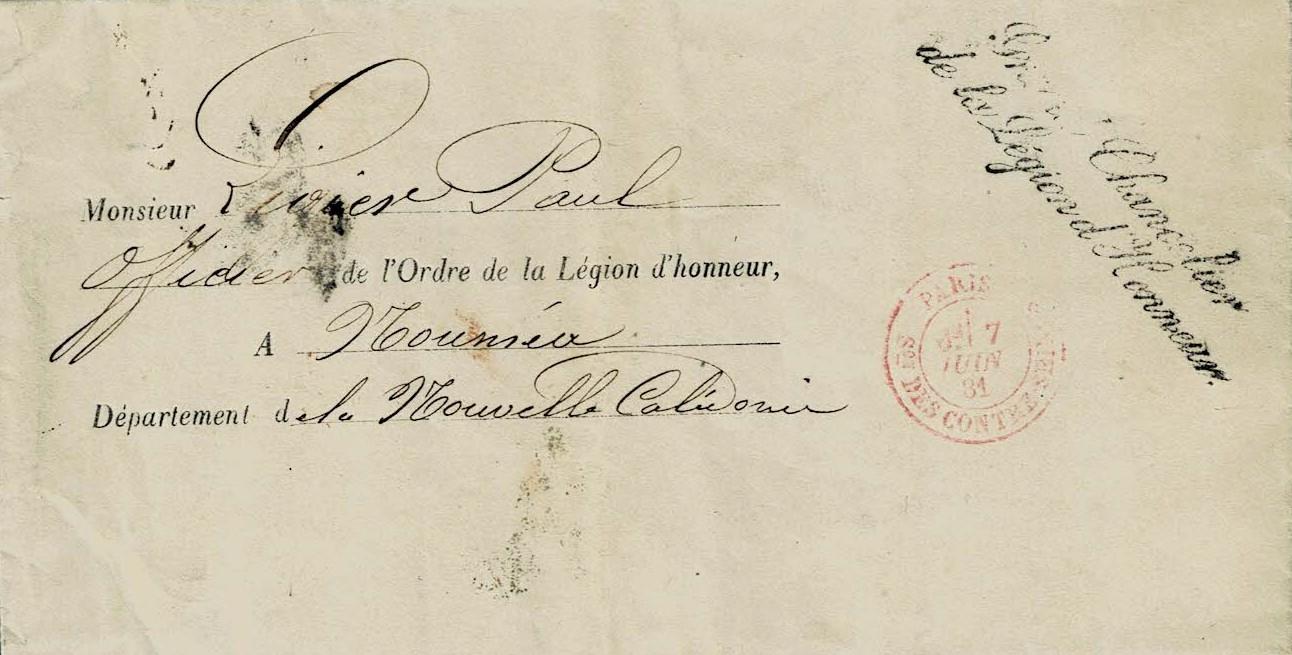 Monsieur Paul
Officier de l'Ordre de la Légion d'honneur,
A Nouméa
Département de la Nouvelle Calédonie
Grand Chancelier
de la Légion d'Honneur.
PARIS
7
JUIN
81
DES CONTRESEINGS